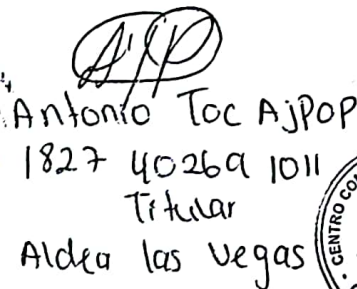 AjP
Antonio Toc AjPOP
1827 40269 1011
Titular
Aldea las vegas
CENTRO CO